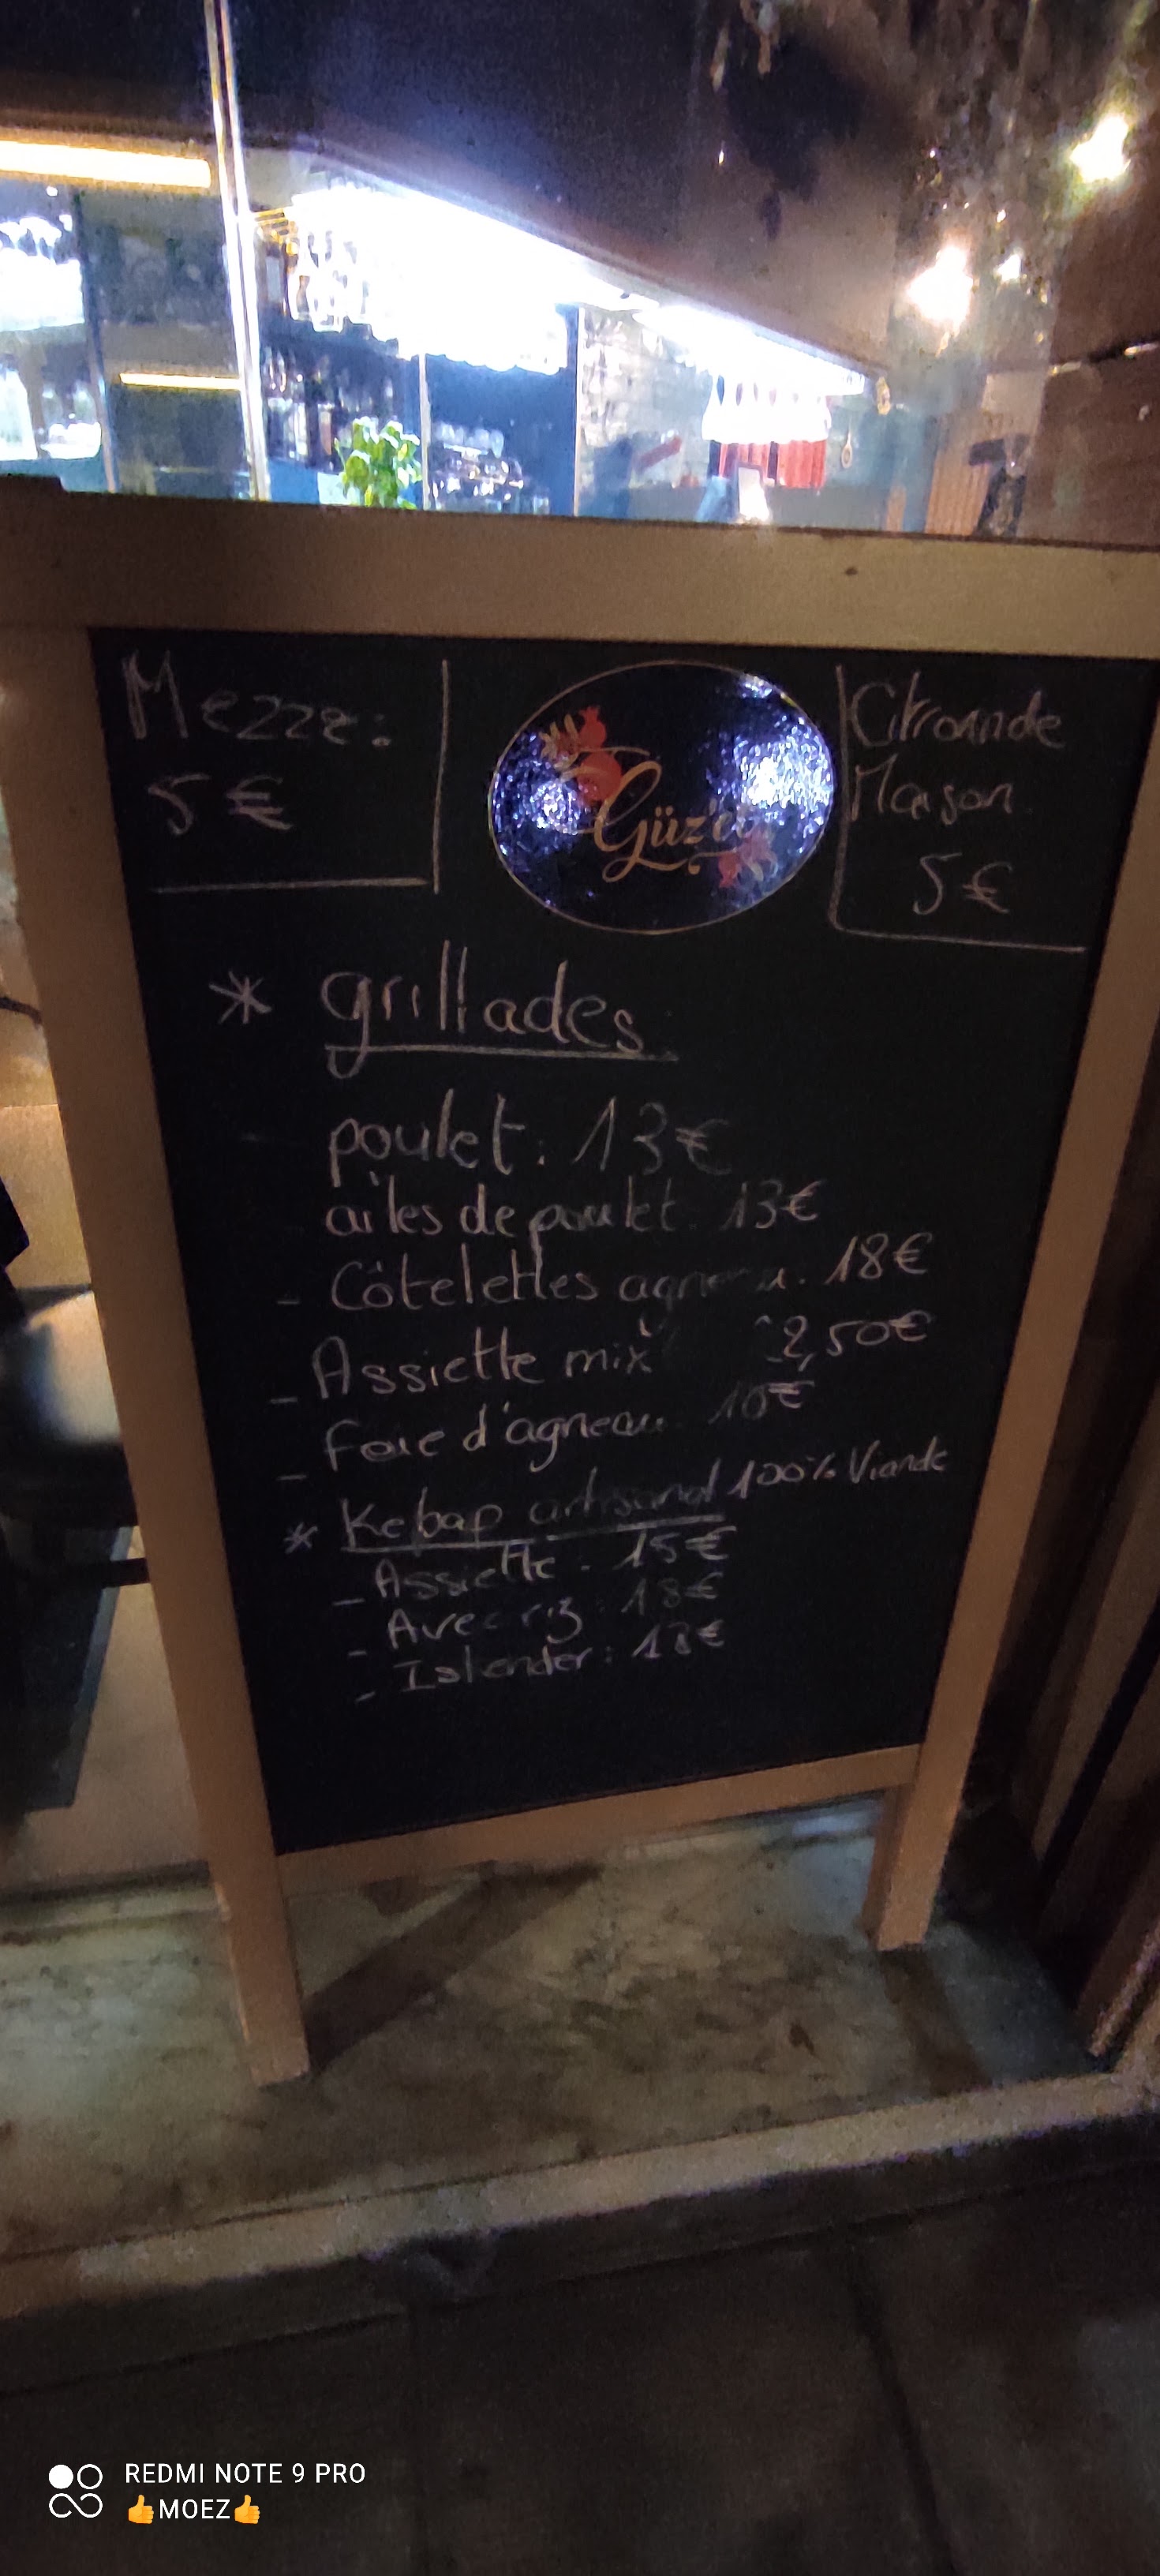 Mezze:
5 €
Citronnade
Maison
5 €
* grillades
poulet: 13€
ailes de poulet: 13€
- Côtelettes agneau. 18€
- Assiette mix 2,50€
- Foie d'agneau 10€
* Kebap artisanal 100% Viande
- Assiette: 15€
- Avec riz: 18€
- Iskender: 18€
REDMI NOTE 9 PRO
👍MOEZ👍